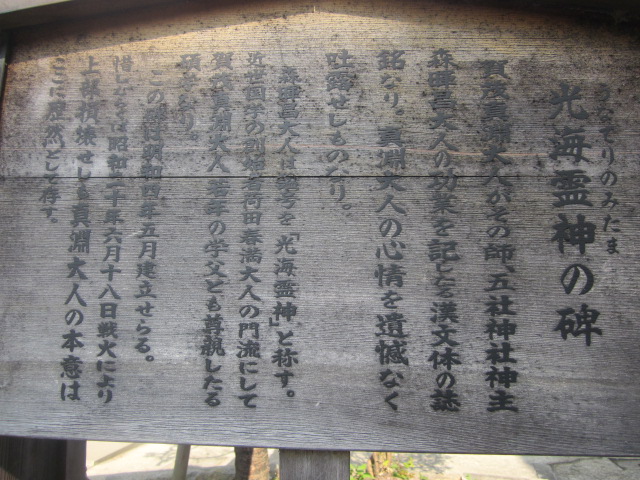 うなてりのみたま
光海霊神の碑
賀茂真淵大人がその師、五社神社神主
森暉昌大人の功業を記したる漢文体の誌
銘なり。真淵大人の心情を遺憾なく
吐露せしものなり。
森暉昌大人は諡号を「光海霊神」と称す。
近世国学の創始者荷田春満大人の門流にして
賀茂真淵大人若年の学父とも尊親したる
碩なり。
この碑は明和四年五月建立せらる。
惜しむらくは昭和二十年六月十八日戦火により
上部損壊せしも真淵大人の本意は
ここに歴然として存す。